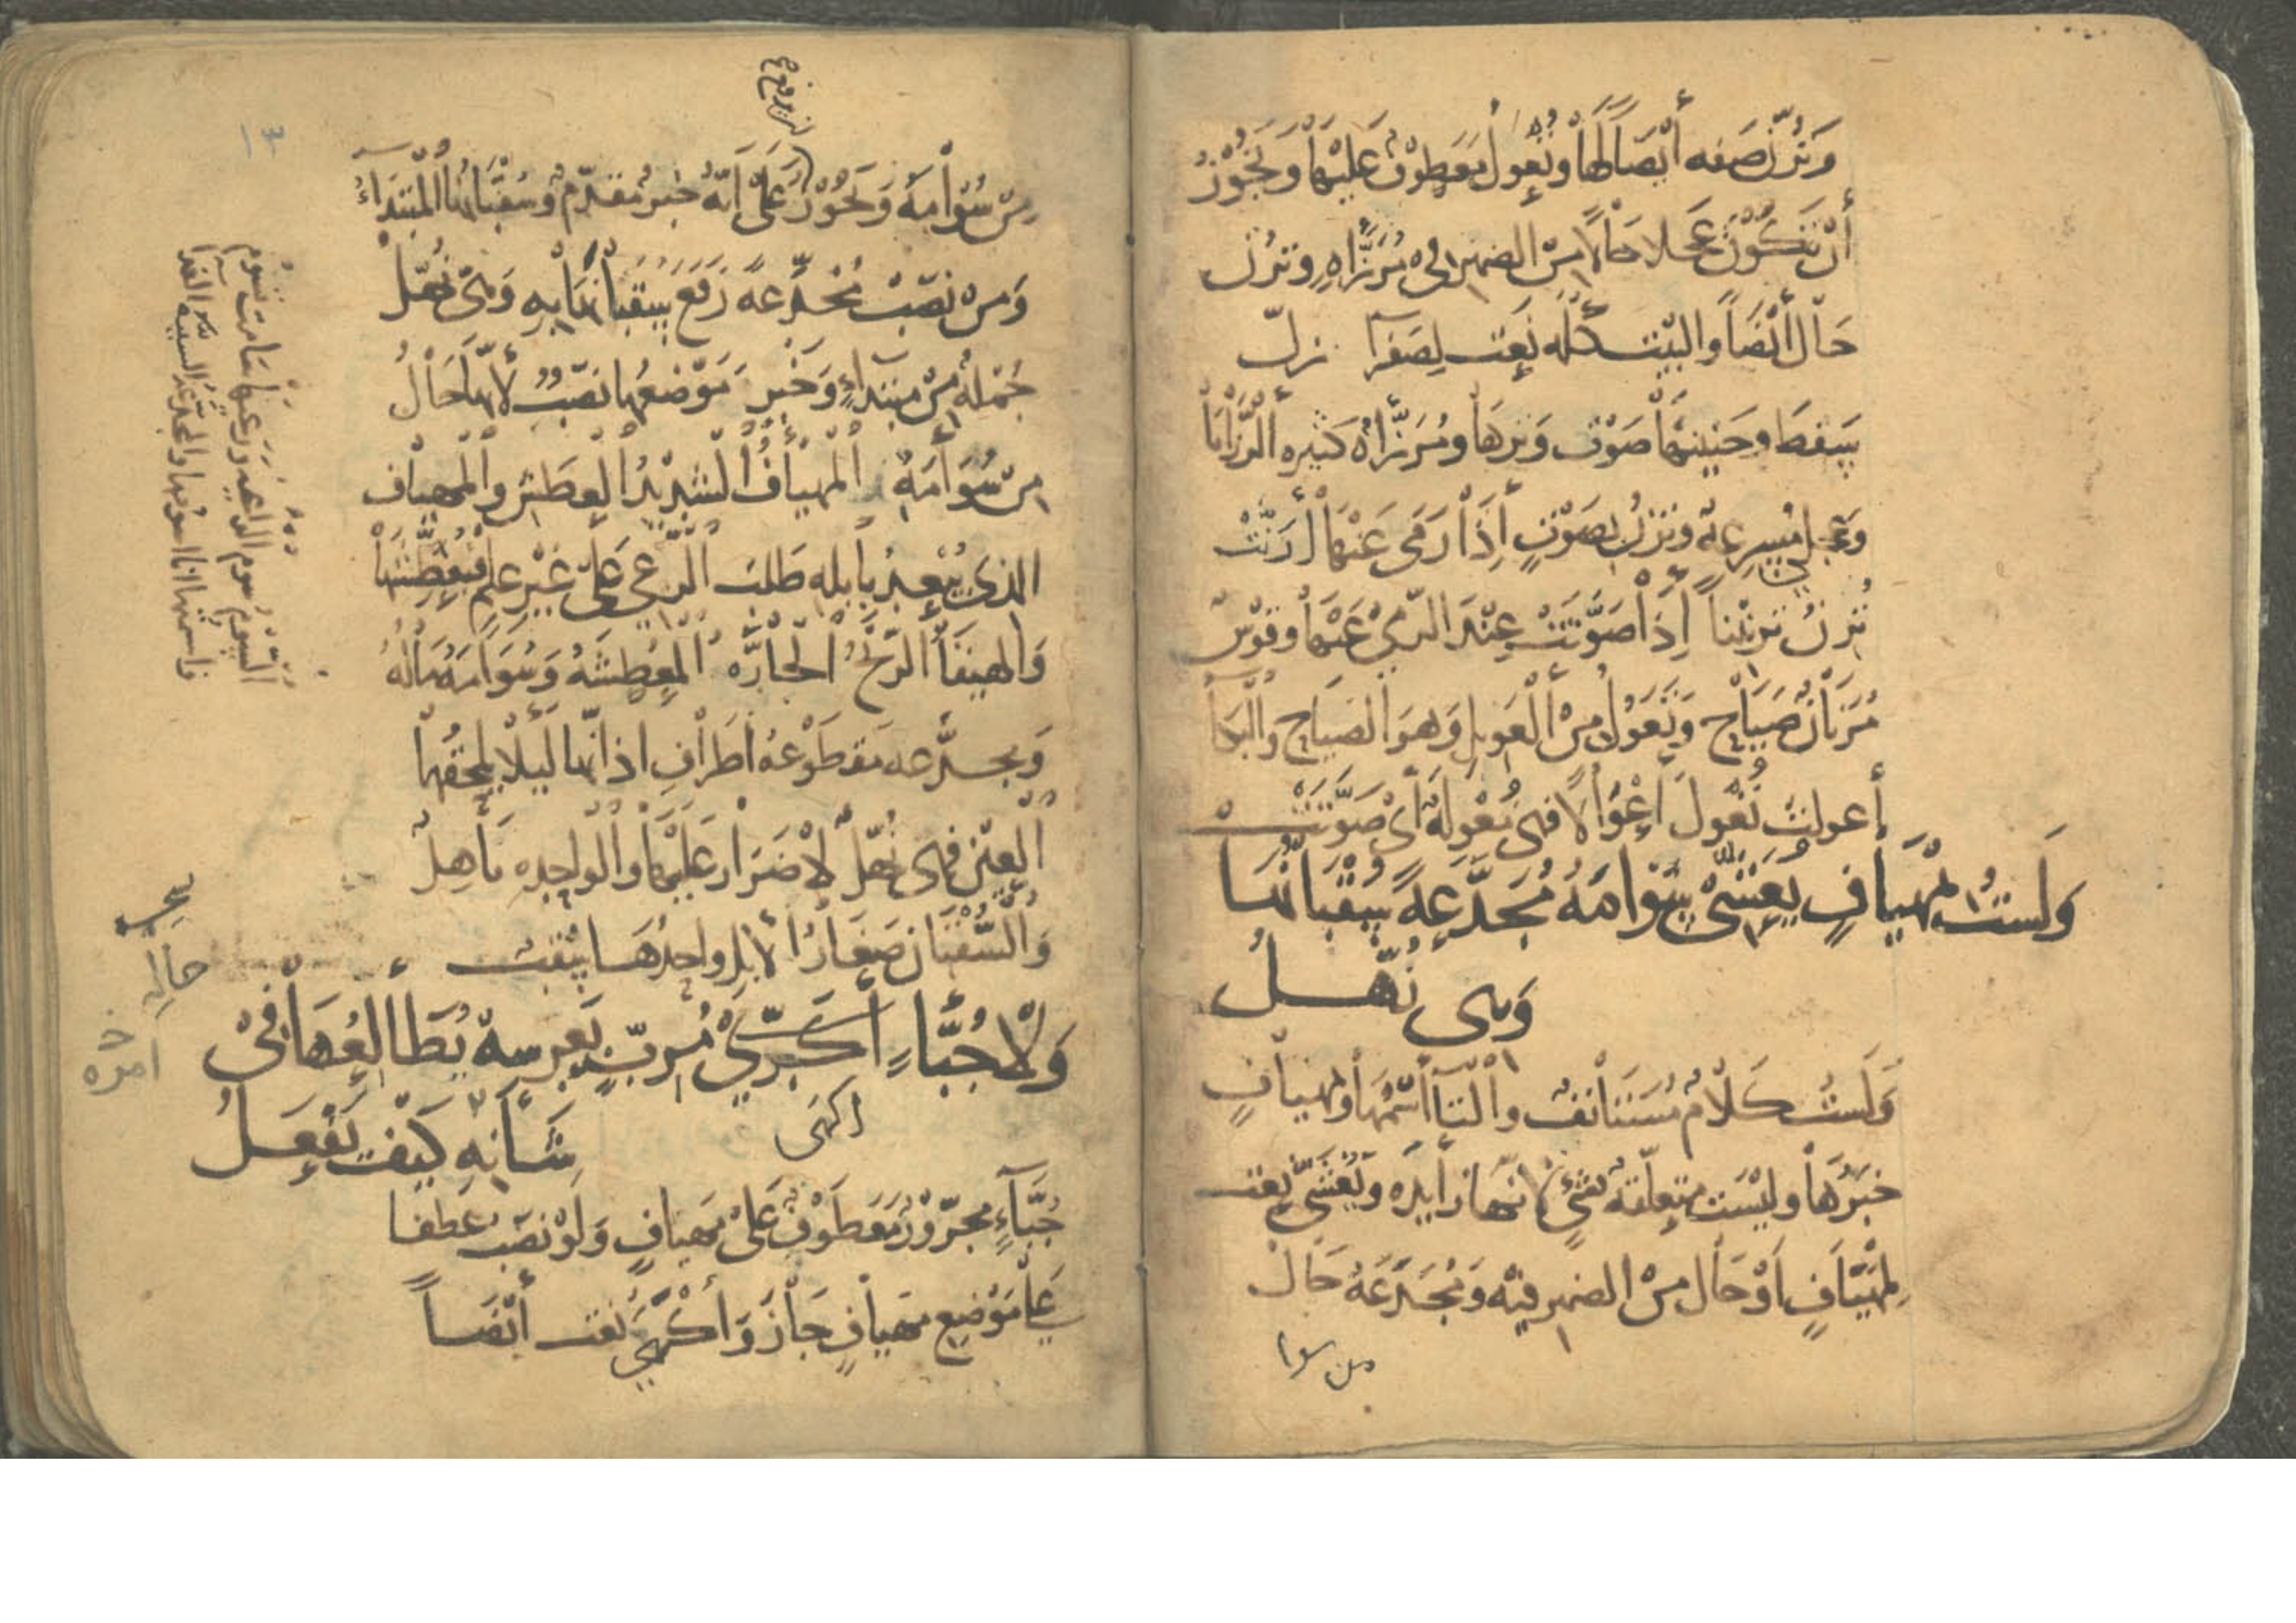 وَتُرِنّ صفه أيْضَاً لهَا وتُعْوِلُ مَعَطوْفٌ عَليْهَا وَيَجُوْزُ
أنْ تَكُوْنَ عَجلا حَالاً مِنَ الضمير في مُرَزَّأَهٍ وترُن
حَالٌ أيْضَاً والبيْت كُله نَعت لِصَفرآ زلّ
سَقطَ وحَنينهَا صَوْت وَترهَا ومُرَزَّأَهٌ كَثيره الرَّزَايَا
وَعَجلى مُسرِعةٌ وتُرِنُ بصَوْتٍ إِذَا رَمَى عَنْهَا أرَنَّتْ
تُرِنُ تَرنيْناً إِذَا صَوَّتَتْ عِنْدَ الرّمي عَنْهَا وقَوْسٌ
مُرنَانٌ صَيَّاح وَتُعْوِلُ مِنْ العَوِيل وَهوَ الصيَاح وَالبُكآ
أعولتْ تُعْوِلُ إعْوَالاً فهى مُعْوِلَةٌ أى صَوَّتَتْ
وَلَستُ بمْهيَافٍ يُعَشّيْ سَوَامَهُ مُجَدَّعَةً سُقْبَانُهَا
وَهى بُهّلُ
وَلَستُ كَلَامٌ مُستَأنفٌ والتآ اسْمُهَا وبمهيَافٍ
خَبَرُهَا وليْسَت متعلّقة بشئٍ لأنهَا زايده ويُعَشّى نعت
لمهيَافٍ أوْ حَال مِنَ الضمير فيْه وَمُجَدّعَةً حَالٌ
من سوا
مِنْ سَوَامَهُ وَيَجُوْزُ عَلَى انّهُ خبرٌ مُقدّمٌ وسُقْبَانُهَا المبْتدَاءُ
لن يرفع
وَمن نصَبْ مُجَدّعةً رَفَعَ سُقبَانُهَا به وَهى بُهّل
جُمْلةٌ مِنْ مبْتداءٍ وَخَبر مَوْضعُهَا نصْبٌ لأنهَا حَالٌ
مِنْ سَوَامَهُ المهيَافُ الشديْدُ العَطَش والمهيَاف
الذى يُبْعِدُ بإبله طَلبَ الرّعي عَلَى غيْر عِلمٍ فيُعَطِّشُهَا
وَالهيفُ الرّيْحُ الحارّه المُعْطِشَهُ وَسَوَامَهُ مَالُهُ
وَمجدَّعه مَقطوْعهُ أطرَافِ اذانهَا لَيلا يلحقُهَا
العَيْن فهى بُهّلٌ لاْضرَار عَليْهَا والواحِده بَاهِلٌ
وَالسُّقْبَان صغَارُ الابل واحِدُهَا سَقب
وَلَا جُبَّاءٍ أكْهَى مُربٍّ بعِرسهِ يُطَالِعُهَا فيْ
شَأنِهِ كَيْفَ يَفْعَلُ
اكهى
جُبَّآءٍ مجرُوْرٌ مَعَطوْفٌ عَلَى مهيافٍ وَلوْ نصَب عَطفا
عَلَى مَوْضع مهيافٍ جَازَ وَأكْهَى نعت أيْضَاً
١٣